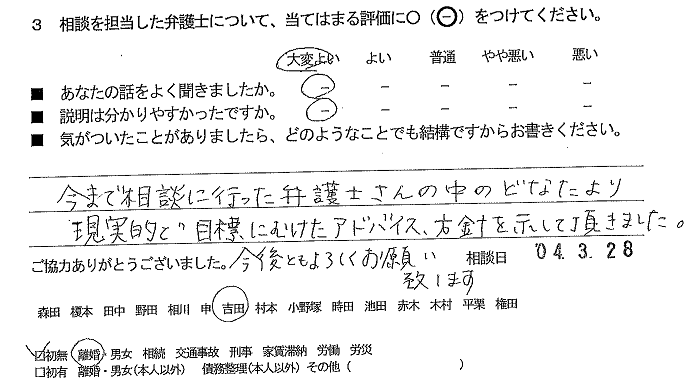 3 相談を担当した弁護士について、当てはまる評価に○（⊖）をつけてください。
大変よい よい 普通 やや悪い 悪い
■ あなたの話をよく聞きましたか。 － － － － －
■ 説明は分かりやすかったですか。 － － － － －
■ 気がついたことがありましたら、どのようなことでも結構ですからお書きください。
今まで相談に行った弁護士さんの中のどなたより
現実的で目標にむけたアドバイス、方針を示して頂きました。
ご協力ありがとうございました。今後ともよろしくお願い 相談日 '04.3.28
致します
森田 榎本 田中 野田 相川 申 吉田 村本 小野塚 時田 池田 赤木 木村 平栗 権田
☑初無 離婚・男女 相続 交通事故 刑事 家賃滞納 労働 労災
□初有 離婚・男女(本人以外) 債務整理(本人以外) その他（ ）